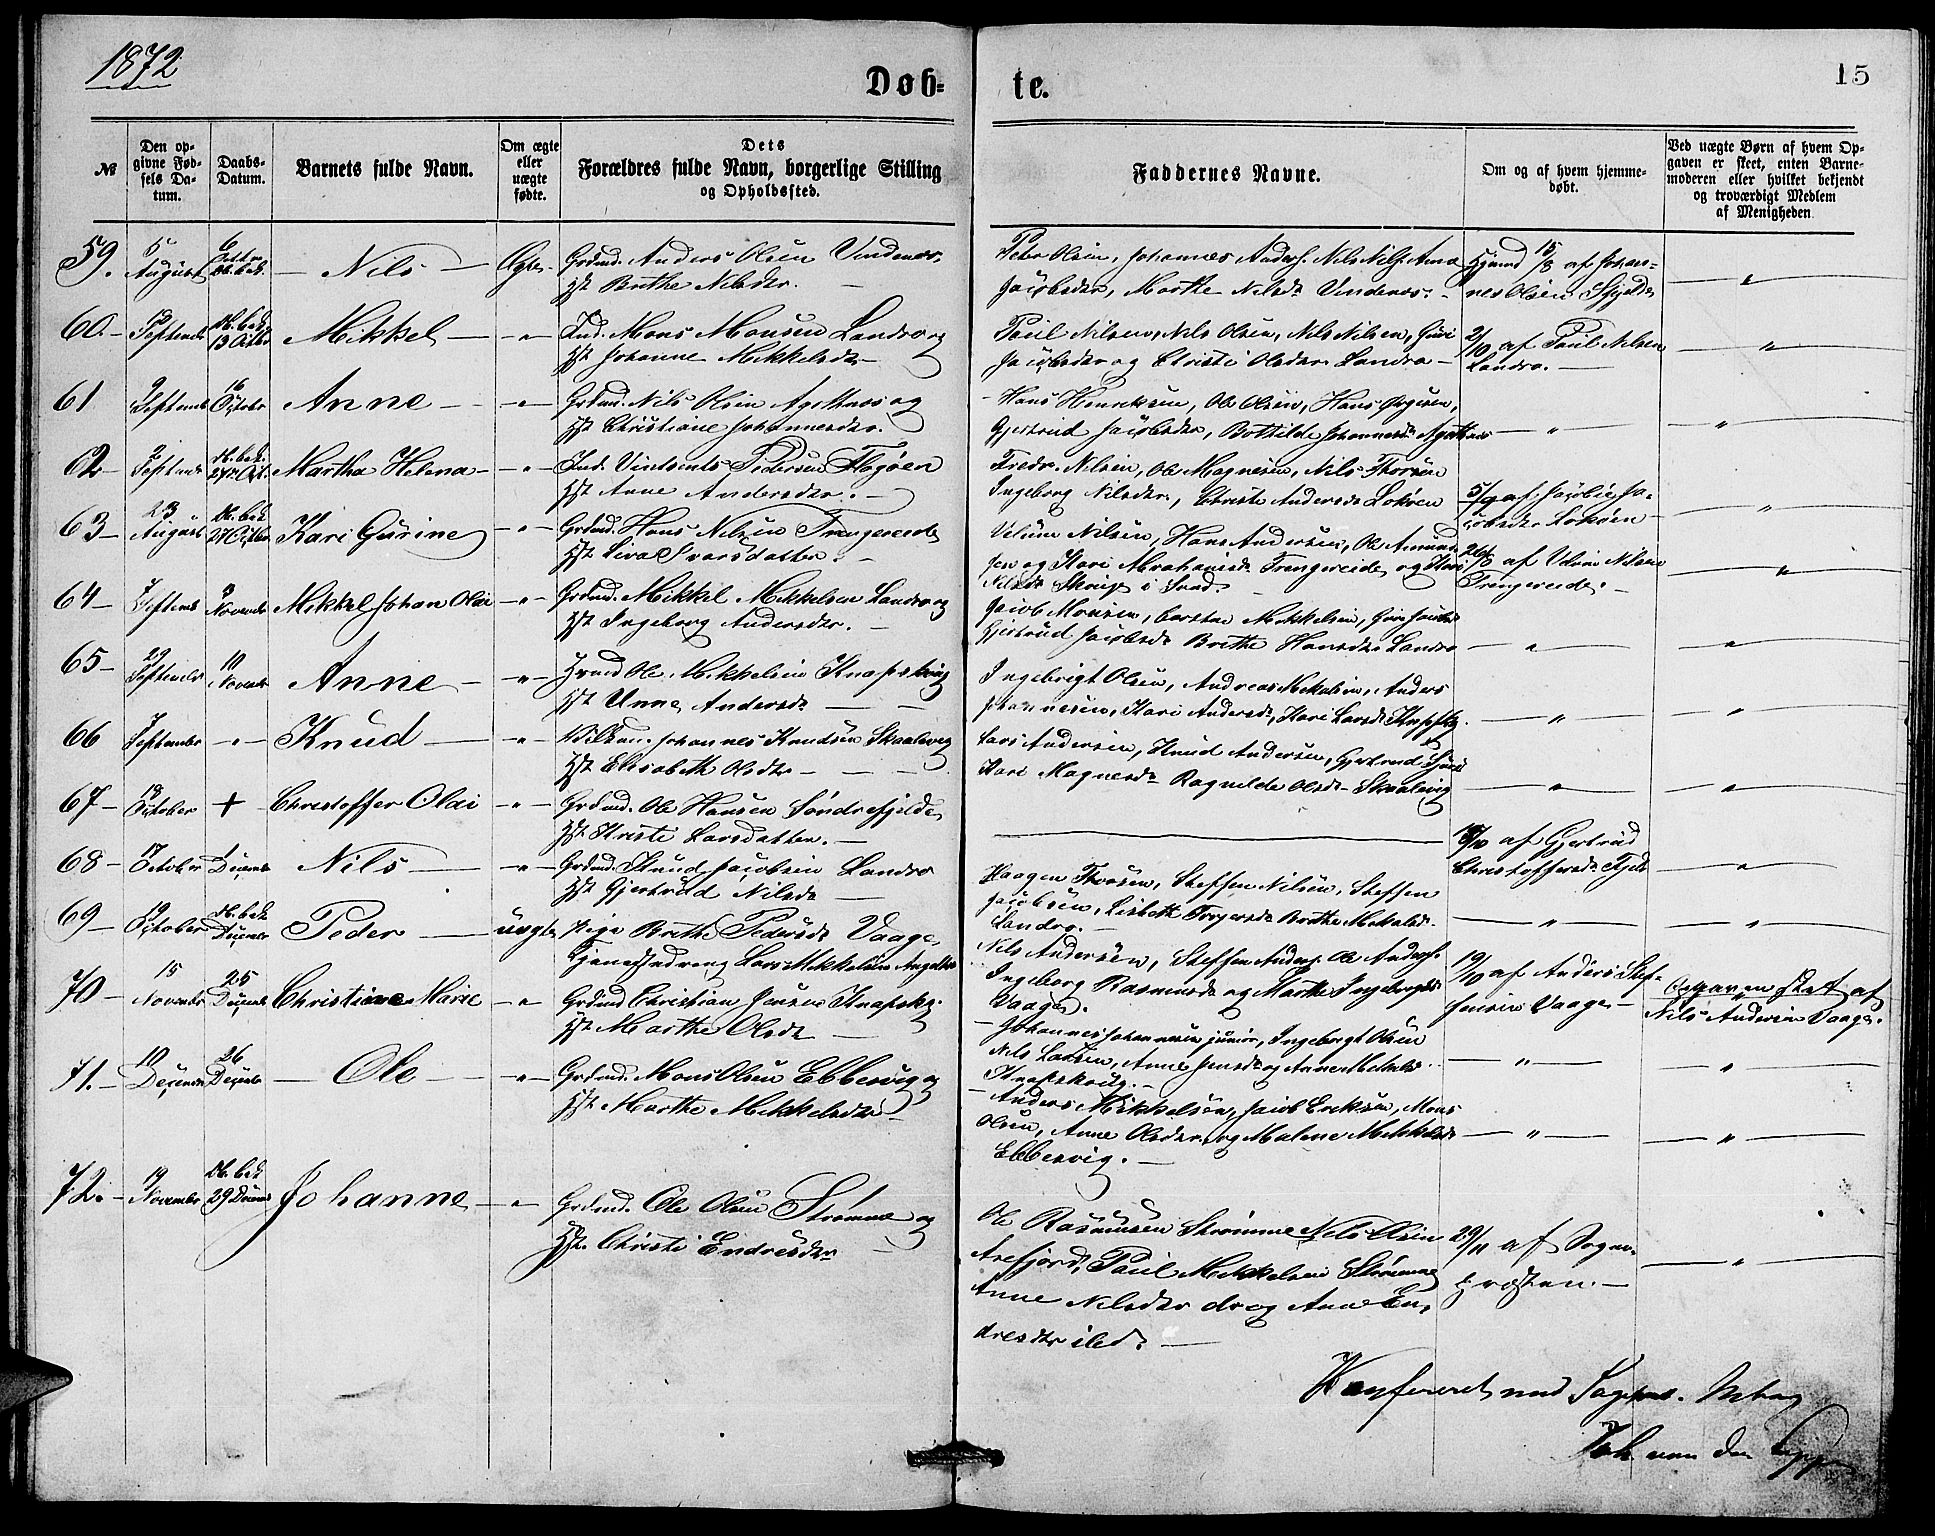 1872
Døb-
te.
15
№
Den op-
givne Fød-
sels Da-
tum.
Daabs-
Datum.
Barnets fulde Navn.
Om ægte
eller
uægte
fødte.
Dets
Forældres fulde Navn, borgerlige Stilling
og Opholdssted.
Faddernes Navne.
Om og af hvem hjemme-
døbt.
Ved uægte Børn af hvem Op-
gaven er skeet, enten Barne-
moderen eller hvilket bekjendt
og troværdigt Medlem
af Menigheden
59. 5 August Nils Ægte Grdmd. Anders Olsen Vindenes
Hst Brithe Nilsdtr.
Peder Olsen, Johannes Anders. Nils Nils. Anna
Jacobsdtr, Marthe Nilsdr Vindenes.
Hjemd 15/8 af Johan-
nes Olsen
60. Septembr Db. bek 13 Octbr Mikkel Ind. Mons Monsen Landro og
Hst Johanne Mikkelsdtr
Paul Nilsen, Nils Olsen, Nils Nilsen, Guri
Jacobsdtr og Christi Olsdtr Landro
2/10 af Paul Nilsen
Landro.
61 9 Septembr 16 Octobr Anne Grdmd. Nils Olsen Agotnes og
Hst Christiane Johannesdtr.
Hans Henriksen, Ole Olsen, Hans
Gjertrud Jacobsdtr, Bothilde Johannesdr Agotnes
62 2 Septembr Db. bek. 27 Oct. Martha Helena Ind. Vintents Pedersen Flogøen
Hst Anne Andersdtr.
Fredr. Nilsen, Ole Magnesen, Nils Thorsen
Ingeborg Nilsdtr, Christi Andersdr Lokøen
5/9 af Jacobsdtr Lokøen
63 23 August Db. bek 27 Octbr Kari Gurine Grdmd. Hans Nilsen Trengereide
Hst Siva Ivarsdatter.
Velum Nilsen, Hans Andersen, Ole Amund-
sen og Kari Abrahamsdr Trengereide og Kari
Nilsdr Skoge i Sund.
26/8 af Velum Nilsen
Trengereide.
64 7 Septembr 3 Novembr Mikkel Johan Olai Grdmd. Mikkel Mikkelsen Landro og
Hst Ingeborg Andersdtr.
Jacob Monsen, Carsten Mikkelsen, Guri Jacobs
Gjertrud Jacobsdr Brithe Hansdtr Landro
65 29 Septembr 10 Novembr Anne Hmd Ole Mikkelsen Knapskog
Hst Unne Andersdr
Ingebrigt Olsen, Andreas Mikkelsen, Anders
Johannesen, Kari Andersdr, Kari Larsdr Knapskg.
66 7 Septembr Knud Johannes Knudsen Skaalevig
Hst Elisabeth Olsdtr
Lars Andersen, Knud Andersen, Gjertrud
Kari Magnesdr Ragnilde Olsdr Skaalevig
67 18 October + Christoffer Olai Grdmd. Ole Hansen Søndrefjelde
Hst Kristi Larsdatter.
/10 af Gjertrud
Christoffersdr Fjeld
68 17 October 1 Decembr Nils Grdmd. Knud Jacobsen Landro
Hst Gjertrud Nilsdr
Haagen Thorsen, Steffen Nilsen, Steffen
Jacobsen, Lisbeth Brithe Mikkelsd.
Landro.
69 19 October Db. bek Decembr Peder uægte Pige Brithe Pedersdr Vaage,
Tjenestedreng Lars Mikkelsen
Nils Andersen, Steffen Anders. Ole Anders.
Ingeborg Rasmusdr og Marthe Ingebrigtsdr
Vaage.
19/10 af Anders Stef-
fensen Vaage
Opgaven skeet af
Nils Andersen Vaage.
70 15 Novembr 25 Decembr Christine Marie Grdmd Christian Jensen Knapskg.
Hst Marthe Olsdr
Johannes Johannesen junior, Ingebrigt Olsen
Nils Larsen, Anne Jensdr og Anne Mikkelsd.
Knapskog.
71. 10 Decembr 26 Decembr Ole Grdmd. Mons Olsen Ebbesvig og
Hst Marthe Mikkelsdtr
Anders Mikkelsen, Jacob Eriksen, Mons
Olsen, Anne Olsdtr og Malene Mikkelsdr
Ebbesvig.
72. 19 Novembr Db. bek 29 Decembr Johanne Grdmd. Ole Olsen Strømme og
Hst. Christi Endresdtr
Ole Rasmusen Strømme Nils Olsen
Arefjord, Paul Mikkelsen Strømme
Anne Nilsdtr do og Anne En-
dresdtr ibd.
29/11 af Sogne-
præsten.
Konfereret med
Joh. von der Lippe